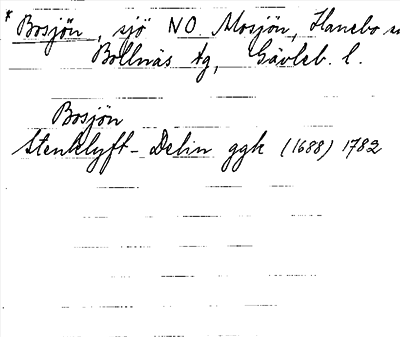 * Bosjön, sjö NO. Mosjön, Hanebo s
Bollnäs tg, Gävleb. l.
Bosjön
Stenklyft - Delin ggk (1688) 1782